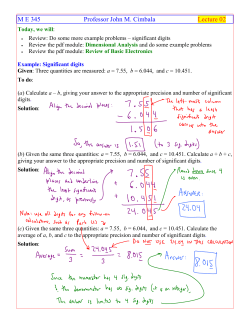 M E 345 Professor John M. Cimbala Lecture 02
Today, we will:
• Review: Do some more example problems – significant digits
• Review the pdf module: Dimensional Analysis and do some example problems
• Review the pdf module: Review of Basic Electronics
Example: Significant digits
Given: Three quantities are measured: a = 7.55, b = 6.044, and c = 10.451.
To do:
(a) Calculate a – b, giving your answer to the appropriate precision and number of significant
digits.
Solution:
Align the decimal places:
7.55
- 6.044
1.506
The left-most column
that has a least
significant digit
carries into the
answer
So, the answer is 1.51 (to 3 sig digits)
(b) Given the same three quantities: a = 7.55, b = 6.044, and c = 10.451. Calculate a + b + c,
giving your answer to the appropriate precision and number of significant digits.
Solution:
Align the decimal
places and underline
the least significant
digit, as previously
7.55
+ 6.044
+ 10.451
24.045
Answer:
24.04
Note: use all digits for any follow-up
calculation,
(c) Given the same three quantities: a = 7.55, b = 6.044, and c = 10.451. Calculate the
average of a, b, and c to the appropriate precision and number of significant digits.
Solution:
DO NOT USE 24.04 IN THIS CALCULATION
Average = Sum / 3 = 24.045 / 3 = 8.015
Answer:
8.015
Since the numerator has 4 sig digits
& the denominator has ∞ sig digits (it is an integer)
The answer is limited to 4 sig digits